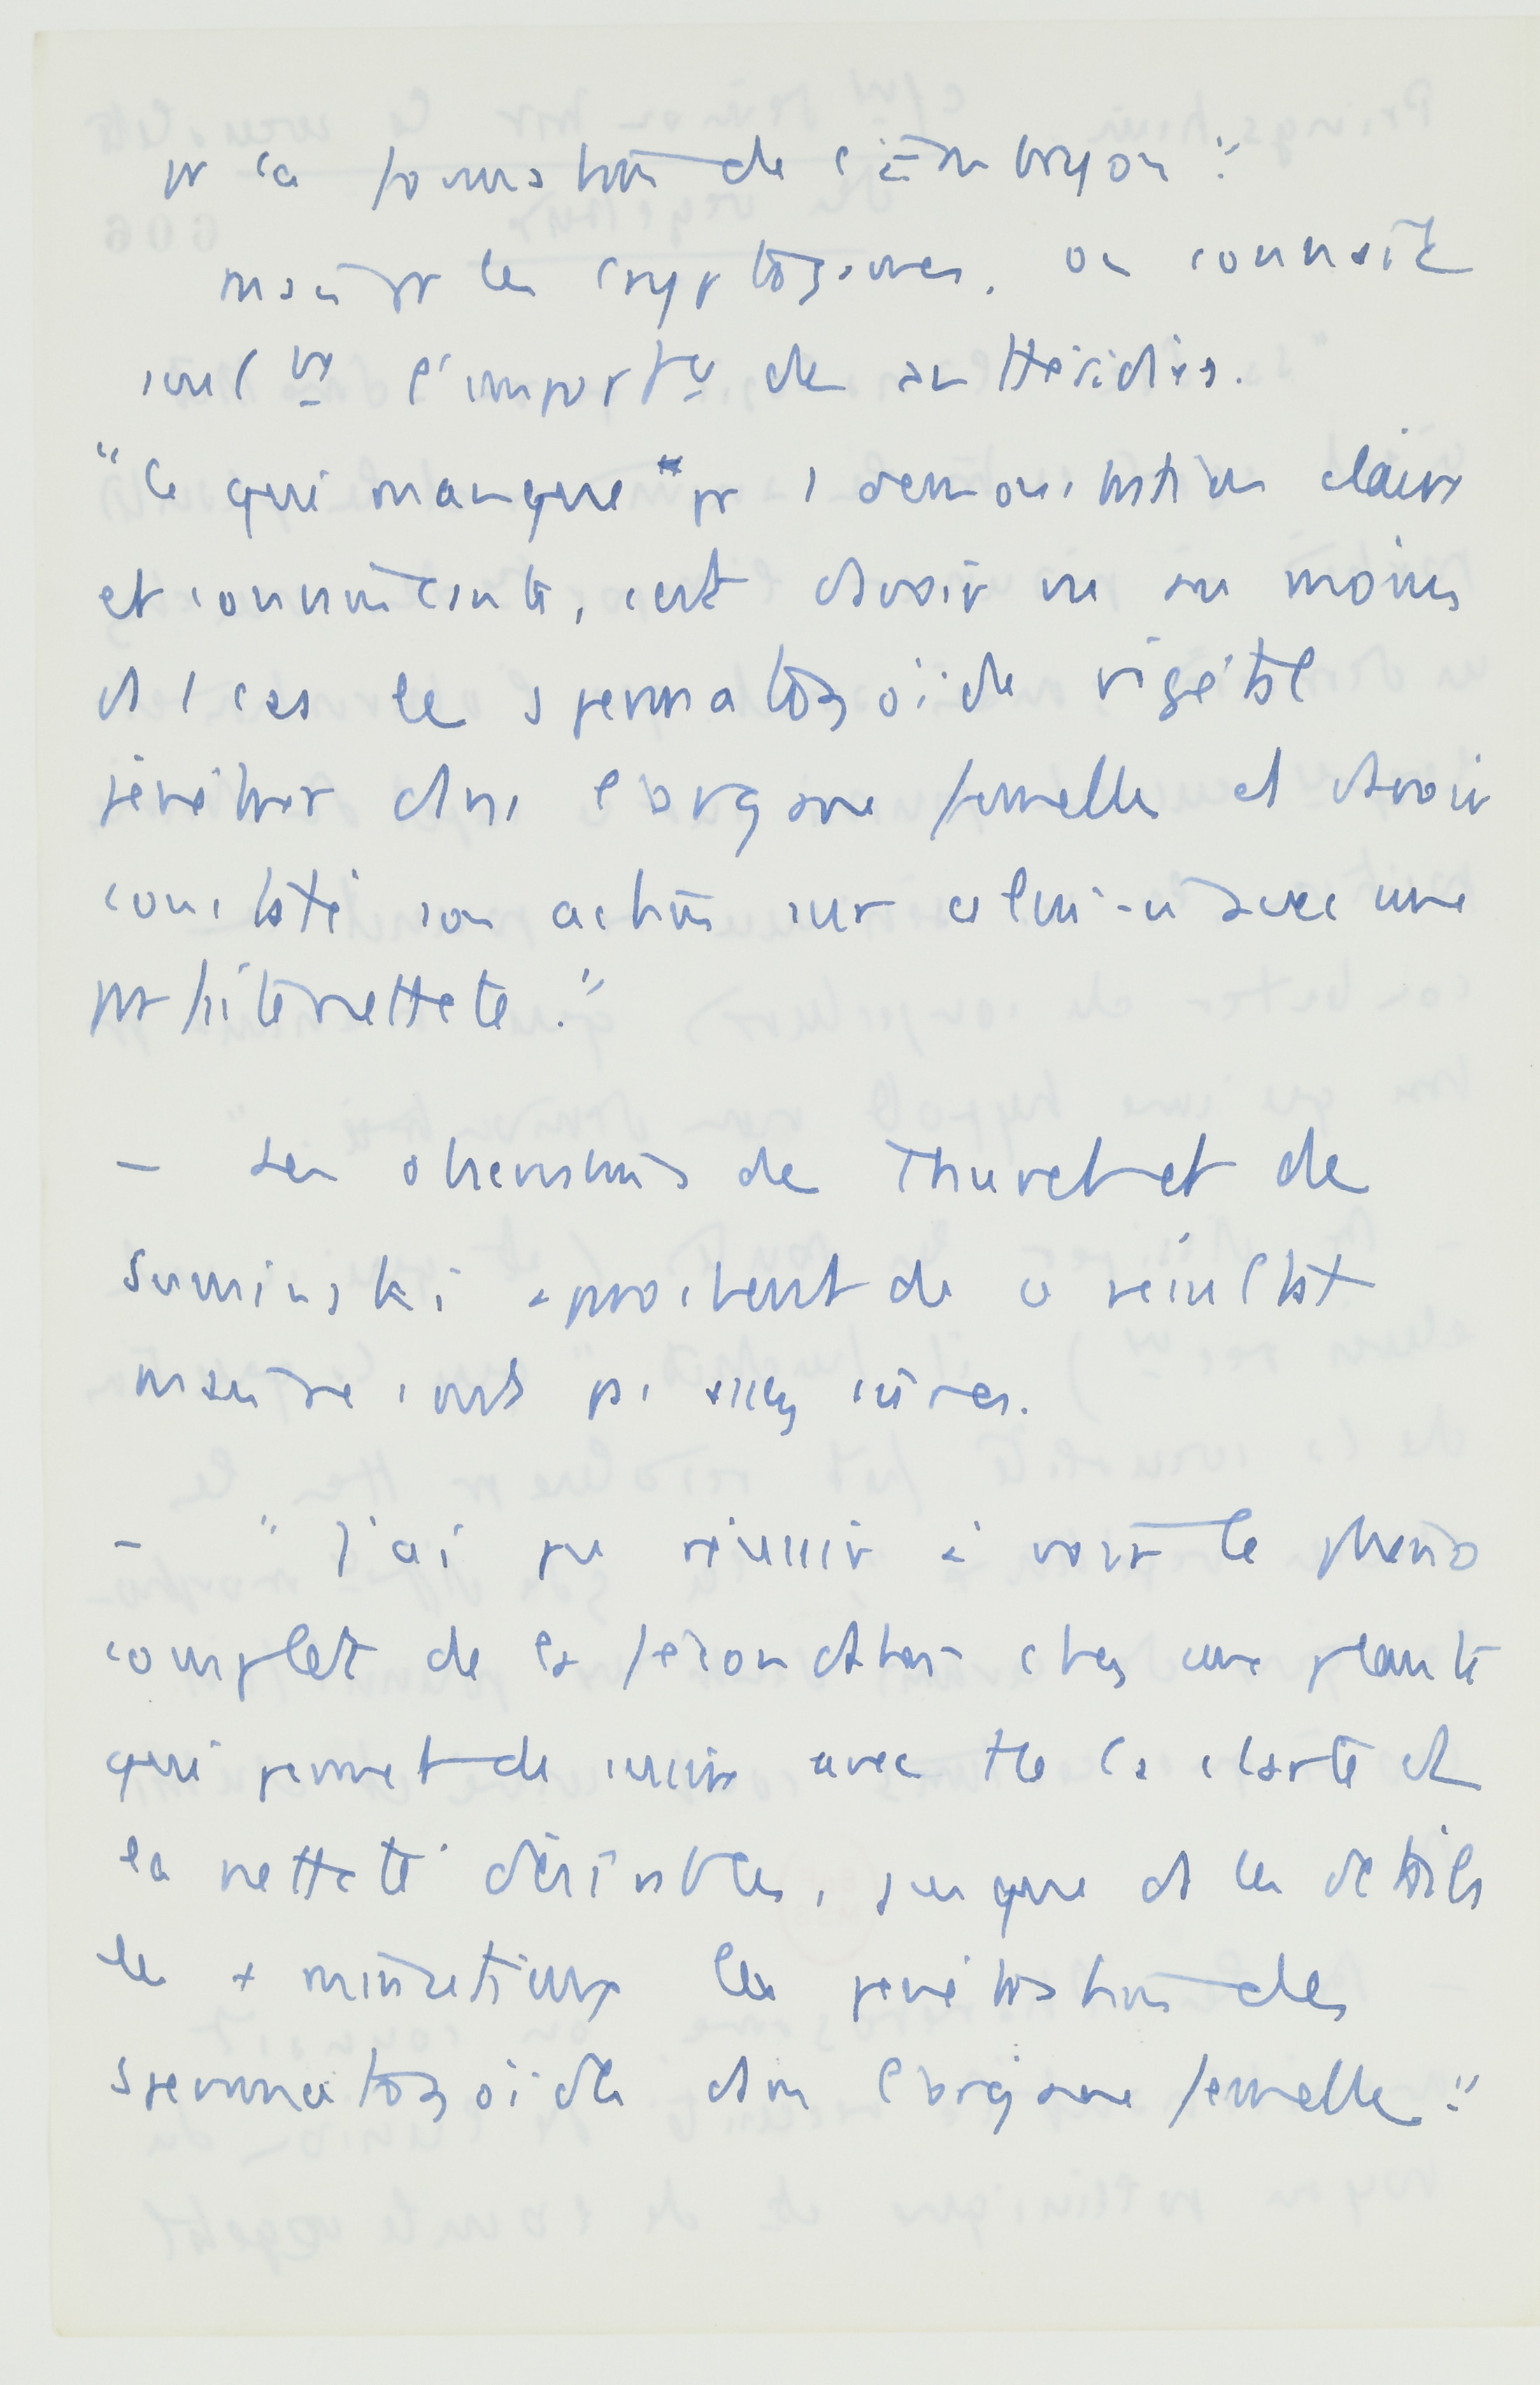 pr la formation de l'embryon."
mais pr les cryptogames, on connaît
seult l'importce des anthéridies.
"Ce qui manque" pr 1 démonstration claire
et convaincante, c'est d'avoir vu au moins
ds 1 cas le spermatozoïde végétal
pénétrer dans l'organe femelle et d'avoir
constaté son action sur celui-ci avec une
parfaite netteté."
– Les observations de Thuret et de
Suminski approchent de ce résultat
mais ne sont pas assez sûres.
– "J'ai pu réussir à voir le phéno
complet de la fécondation chez une plante
qui permet de suivre avec tte la clarté et
la netteté désirables, jusque ds les détails
les + minutieux la pénétration des
spermatozoïdes dans l'organe femelle."